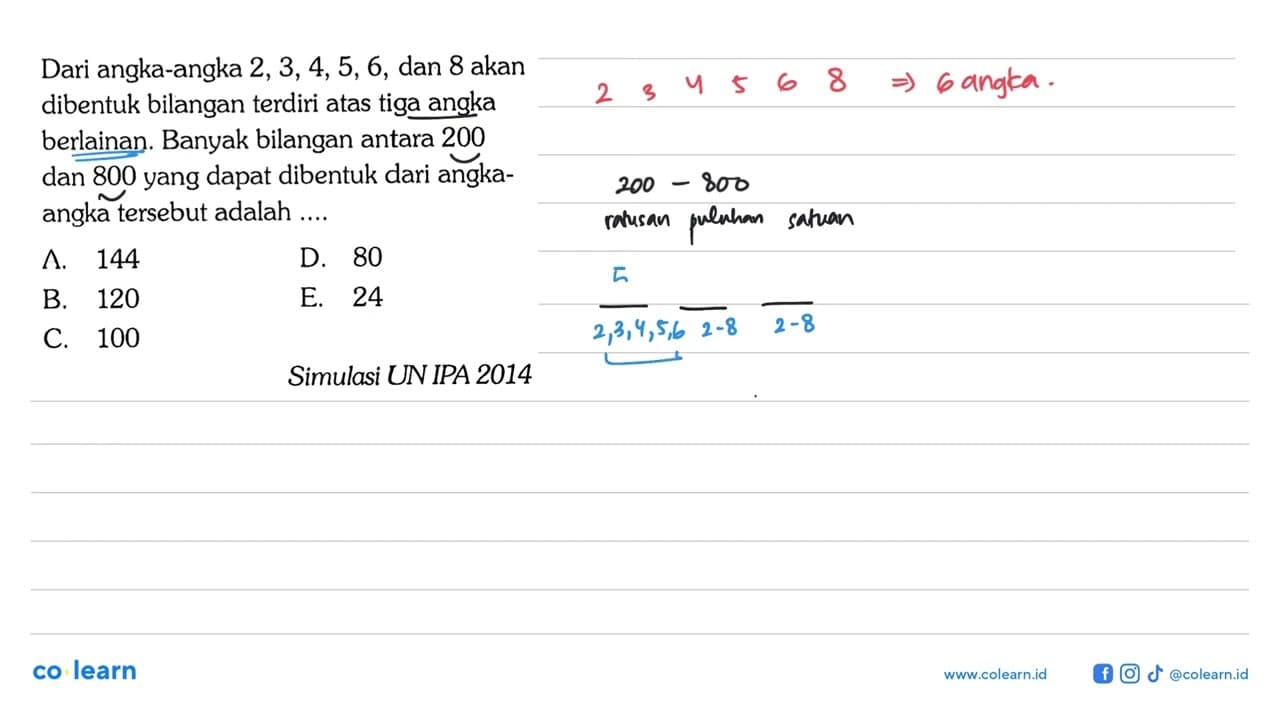 Dari angka-angka 2, 3, 4, 5, 6, dan 8 akan
dibentuk bilangan terdiri atas tiga angka
berlainan. Banyak bilangan antara 200
dan 800 yang dapat dibentuk dari angka-
angka tersebut adalah ....
A. 144
B. 120
C. 100
D. 80
E. 24
Simulasi UN IPA 2014
2 3 4 5 6 8 ⇒ 6 angka.
200 - 800
ratusan puluhan satuan
5
2,3,4,5,6 2-8 2-8
co learn
www.colearn.id
@colearn.id